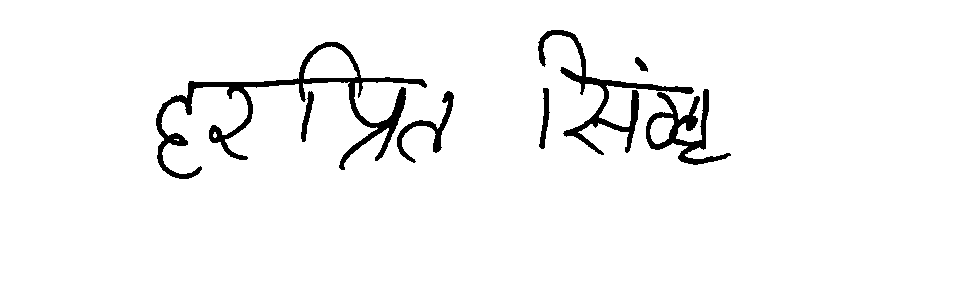 हरप्रित सिंघ